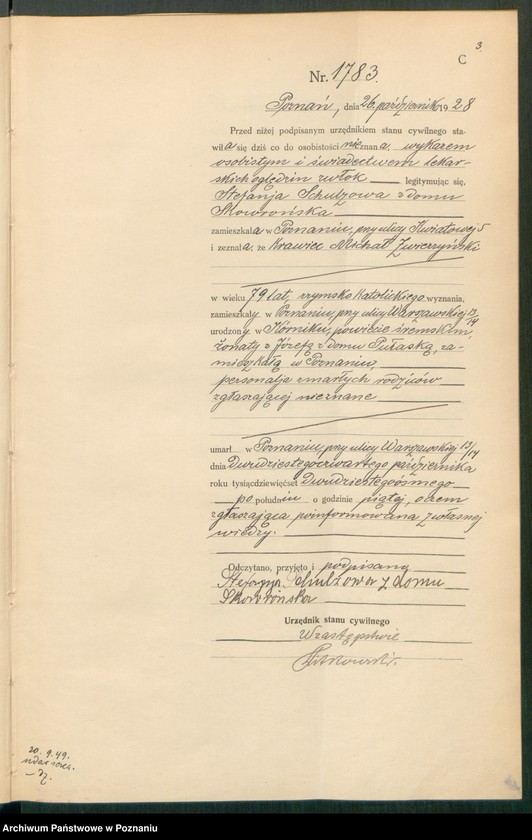 3.
C
Nr. 1783.
Poznań, dnia 26. październik 1928
Przed niżej podpisanym urzędnikiem stanu cywilnego sta-
wiła się dziś co do osobistości nieznana, wykazem
osobistym i świadectwem lekar-
skich oględzin zwłok legitymując się,
Stefanja Schulzowa z domu
Skowrońska
zamieszkała w Poznaniu, przy ulicy Kwiatowej 5
i zeznała, że krawiec Michał Zwierzyński
w wieku 79 lat, rzymsko katolickiego wyznania,
zamieszkały w Poznaniu, przy ulicy Warszawskiej 13/14
urodzony w Kórniku, powiecie śremskim,
żonaty z Józefą z domu Pułaską, za-
mieszkałą w Poznaniu,
personalja zmarłych rodziców
zgłaszającej nieznane
umarł w Poznaniu, przy ulicy Warszawskiej 13/14
dnia Dwudziestegoczwartego października
roku tysiącdziewięćset Dwudziestegoósmego
po południu o godzinie piątej, o czem
zgłaszająca poinformowana z własnej
wiedzy.
Odczytano, przyjęto i podpisany
Stefanja Schulzowa z domu
Skowrońska
Urzędnik stanu cywilnego
W zastępstwie
20. 9. 49.
Archiwum Państwowe w Poznaniu